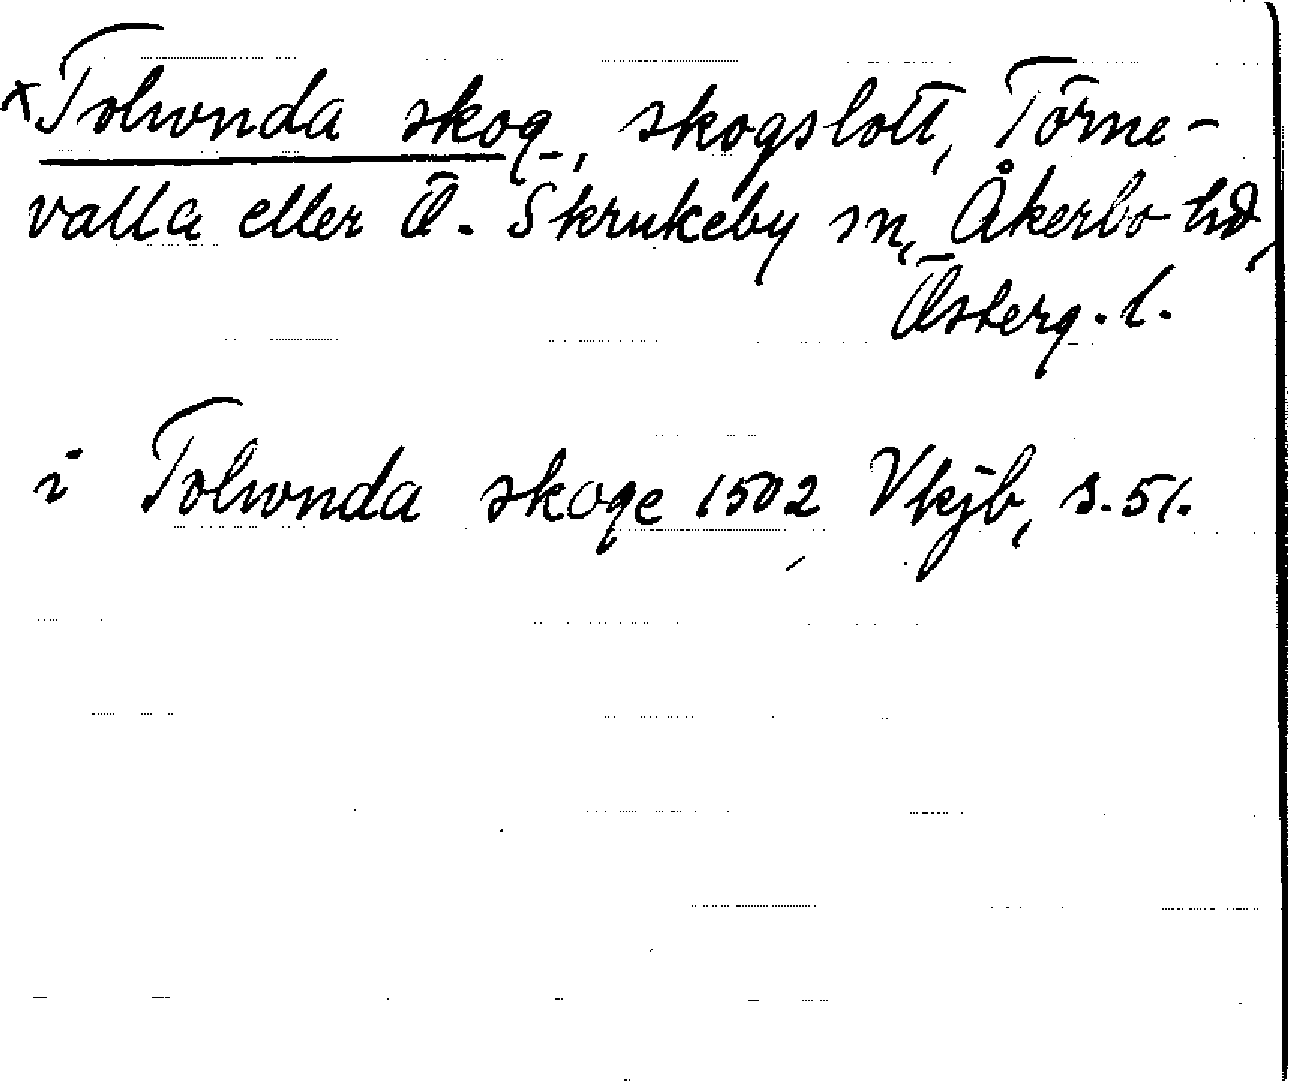 *Tolwnda skog, skogslott, Törne-
valla eller Ö. Skrukeby sn, Åkerbo hd,
Österg. l.
i Tolwnda skoge 1502 Vkjb, s. 51.